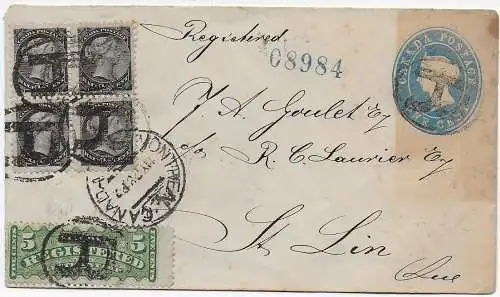 Registered
08984
CANADA POSTAGE
ONE CENT
J. A. Goulet Esq
c/o R. C. Laurier Esq
St. Lin
Que
MONTREAL
CANADA
5 5
REGISTERED